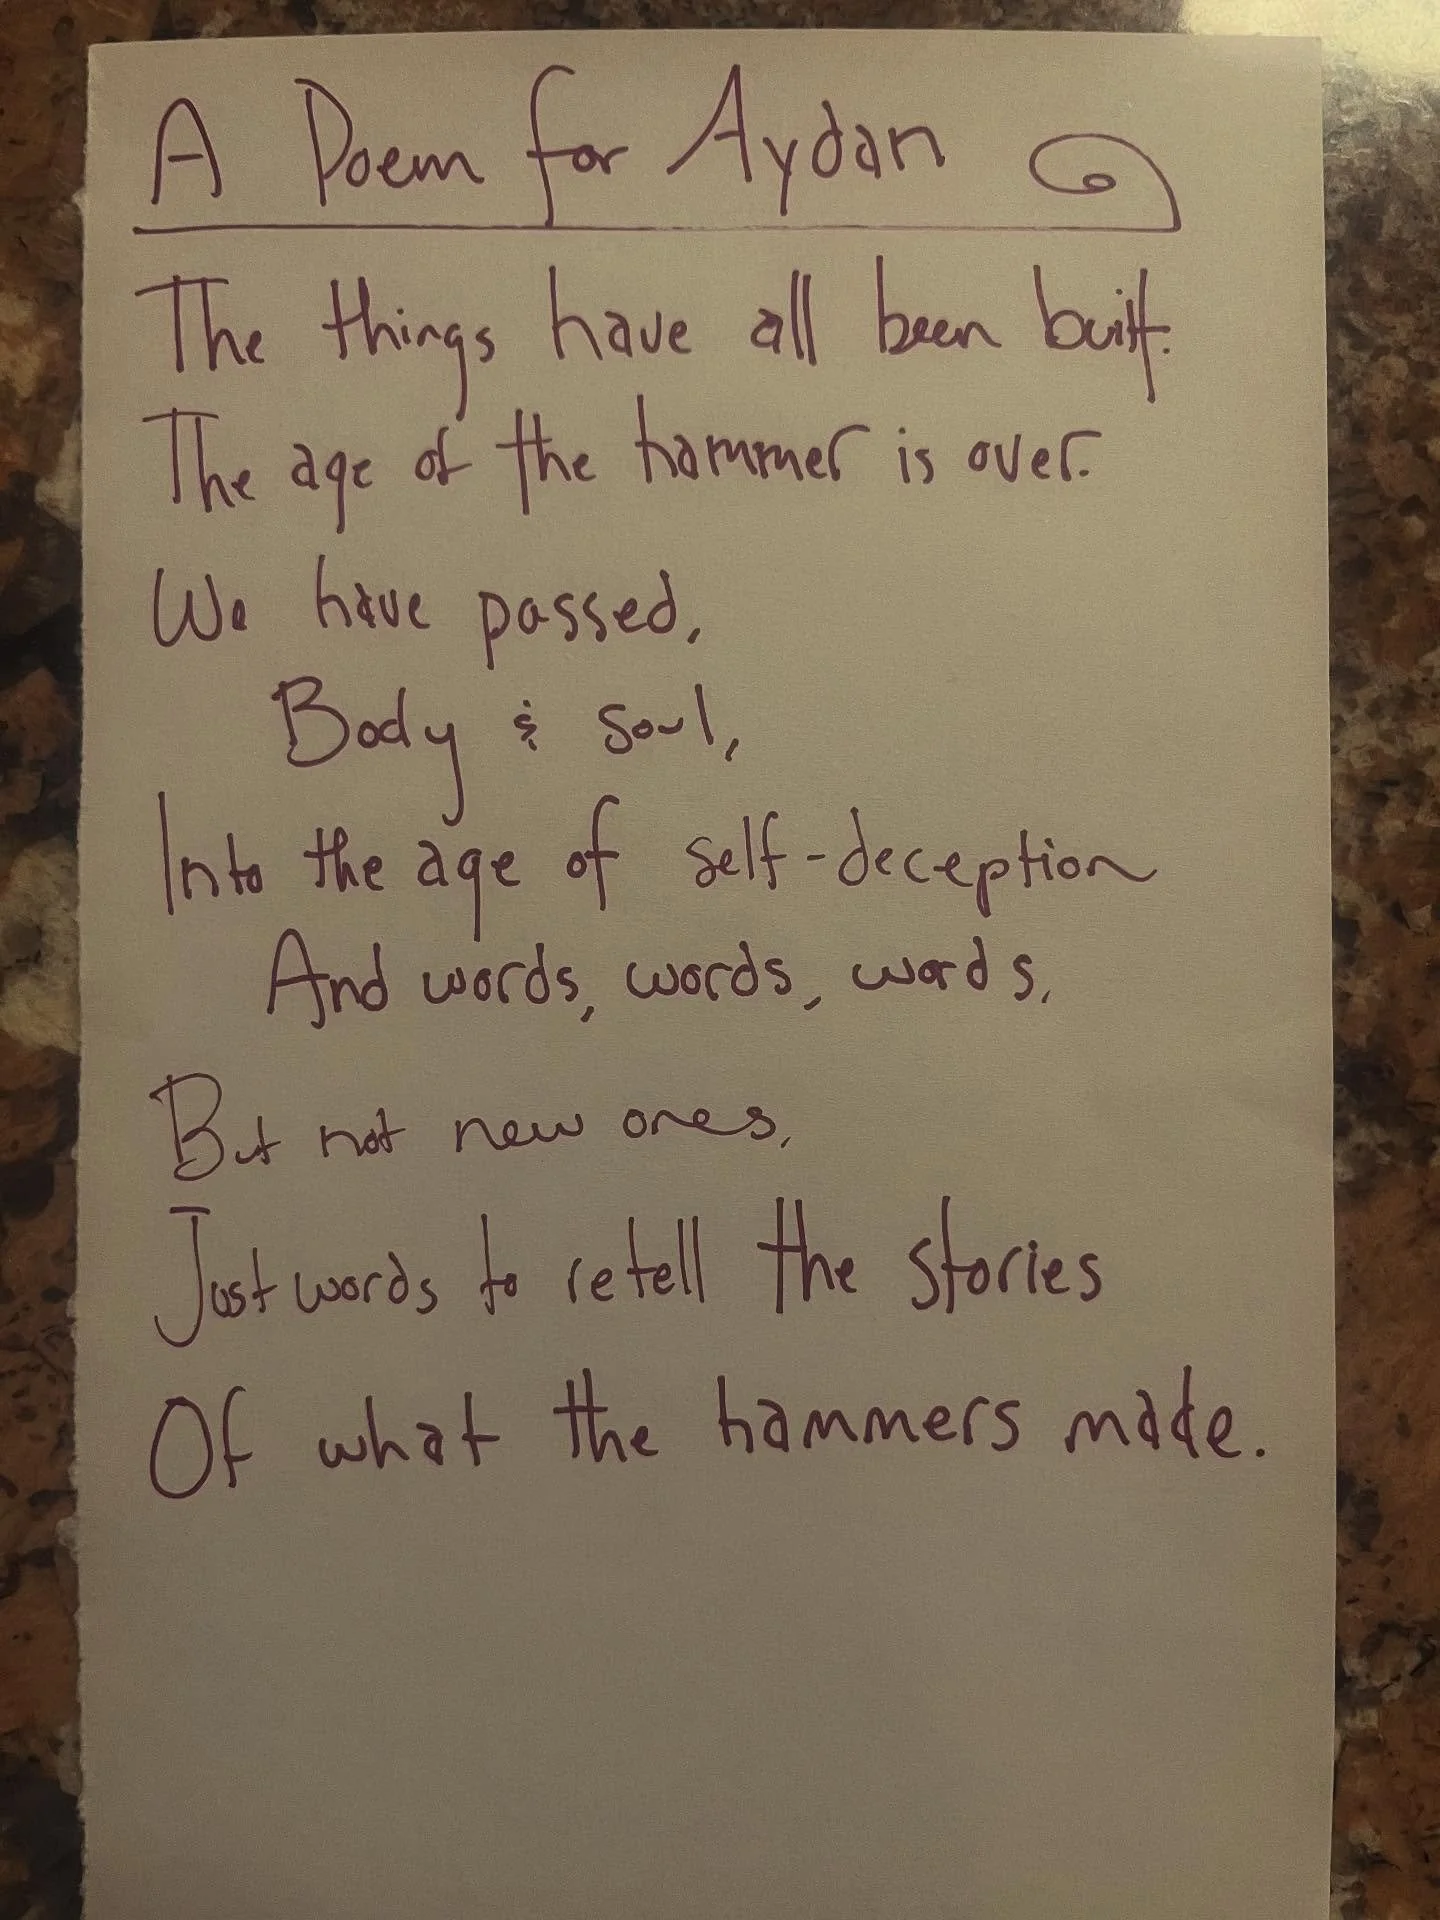 A Poem for Aydan
The things have all been built.
The age of the hammer is over.
We have passed,
Body & soul,
Into the age of self-deception
And words, words, words,
But not new ones,
Just words to retell the stories
Of what the hammers made.